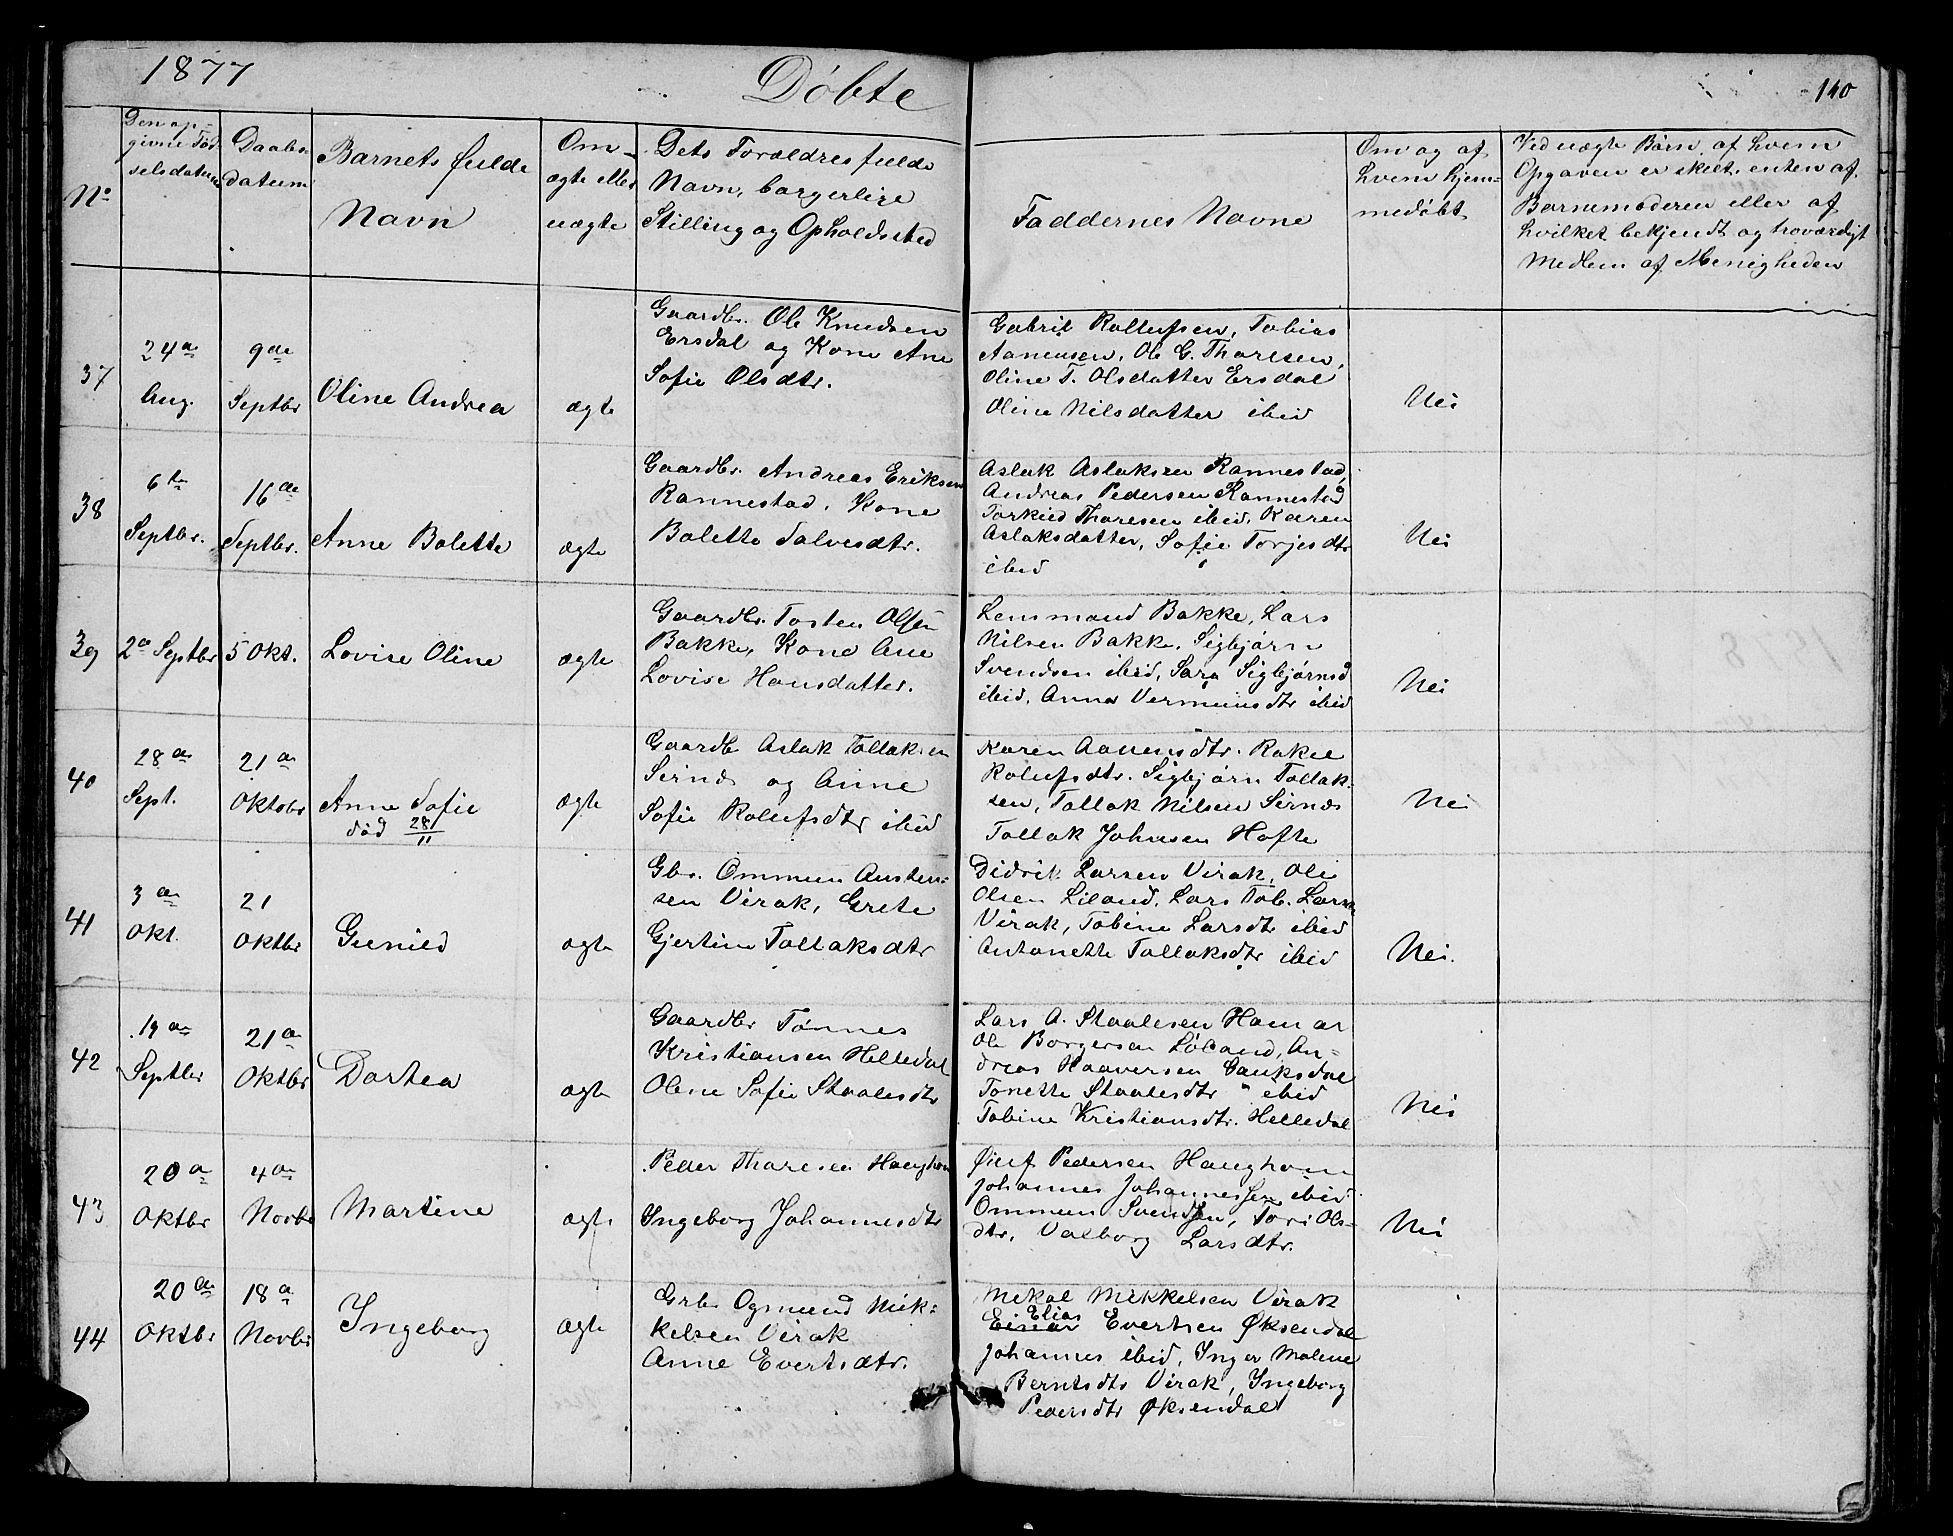 1877
Døbte
140
No
Den op-
givne Fød-
selsdatum
Daabs-
datum
Barnets fulde
Navn
Om
ægte eller
uægte
Dets Forældres fulde
Navn, borgerlige
Stilling og Opholdssted
Faddernes Navne
Om og af
hvem hjem-
medøbt
Ved uægte Børn, af hvem
Opgaven er skeet, enten af
Barnemoderen eller af
hvilket bekjendt og troværdigt
Medlem af Menigheden
37
24de
Aug.
9de
Septbr
Oline Andrea
ægte
Gaardbr. Ole Knudsen
Ersdal og Kone Ane
Sofie Olsdtr.
Gabriel Rollufsen, Tobias
Aanensen, Ole G. Thoresen,
Oline T. Olsdatter Ersdal
Oline Nilsdatter ibid
Nei
38
6te
Septbr.
16de
Septbr.
Anne Bolette
ægte
Gaardbr. Andreas Eriksen
Rannestad, Kone
Bolette Salvesdtr.
Aslak Aslaksen Rannestad,
Andreas Pedersen Rannestad
Torkild Thoresen ibid, Karen
Aslaksdatter, Sofie Torjesdtr
ibid
Nei
39
2de Septbr
5 Okt.
Lovise Oline
ægte
Gaardbr. Tosten Olsen
Bakke, Kone Ane
Lovise Hansdatter.
Lensmand Bakke, Lars
Nilsen Bakke, Sigbjørn
Svendsen ibid, Sara Sigbjørnsd
ibid, Anna Vermunsdtr ibid
Nei
40
28de
Sept.
21de
Oktobr
Anne Sofie
død 28/11
ægte
Gaardbr Aslak Tollaksen
Sirnes og Anne
Sofie Rolufsdtr ibid
Karen Aanensdtr. Rakel
Rolufsdtr. Sigbjørn Tollak-
sen, Tollak Nilsen Sirnes
Tollak Johnsen Hofte
Nei
41
3de
Okt.
21
Oktbr
Gunild
ægte
Gbr. Ommun Austen-
sen Virak, Grete
Gjertine Tollaksdtr
Didrik Larsen Virak, Ole
Olsen Liland, Lars Tob. Larsen
Virak, Tobine Larsdtr ibid
Antonette Tollaksdtr ibid
Nei.
42
19de
Septbr
21de
Oktbr
Dortea
ægte
Gaardbr Tønnes
Kristiansen Helledal
Olene Sofie Staalesdtr
Lars A. Staalesen Hamar
Ole Borgersen Løland, An-
dreas Haaversen Gauksdal
Tonette Staalesdtr " ibid
Tobine Kristiansdtr. Helledal
Nei
43
20de
Oktbr
4de
Novbr
Martine
ægte
Peder Thoresen Haughom
Ingeborg Johannesdtr
Øiuf Pedersen Haughom
Johannes Johannessen ibid
Ommun Svendsen, Tori Ols-
dtr, Valborg Larsdtr.
Nei
44
20de
Oktbr
18de
Novbr
Ingeborg
ægte
Grbr Ogmund Mik-
kelsen Virak
Anne Evertsdtr.
Mikal Mikkelsen Virak
Elias
Einar Evertsen Øksendal
Johannes ibid, Inger Malene
Berntsdtr Virak, Ingeborg
Pedersdtr Øksendal